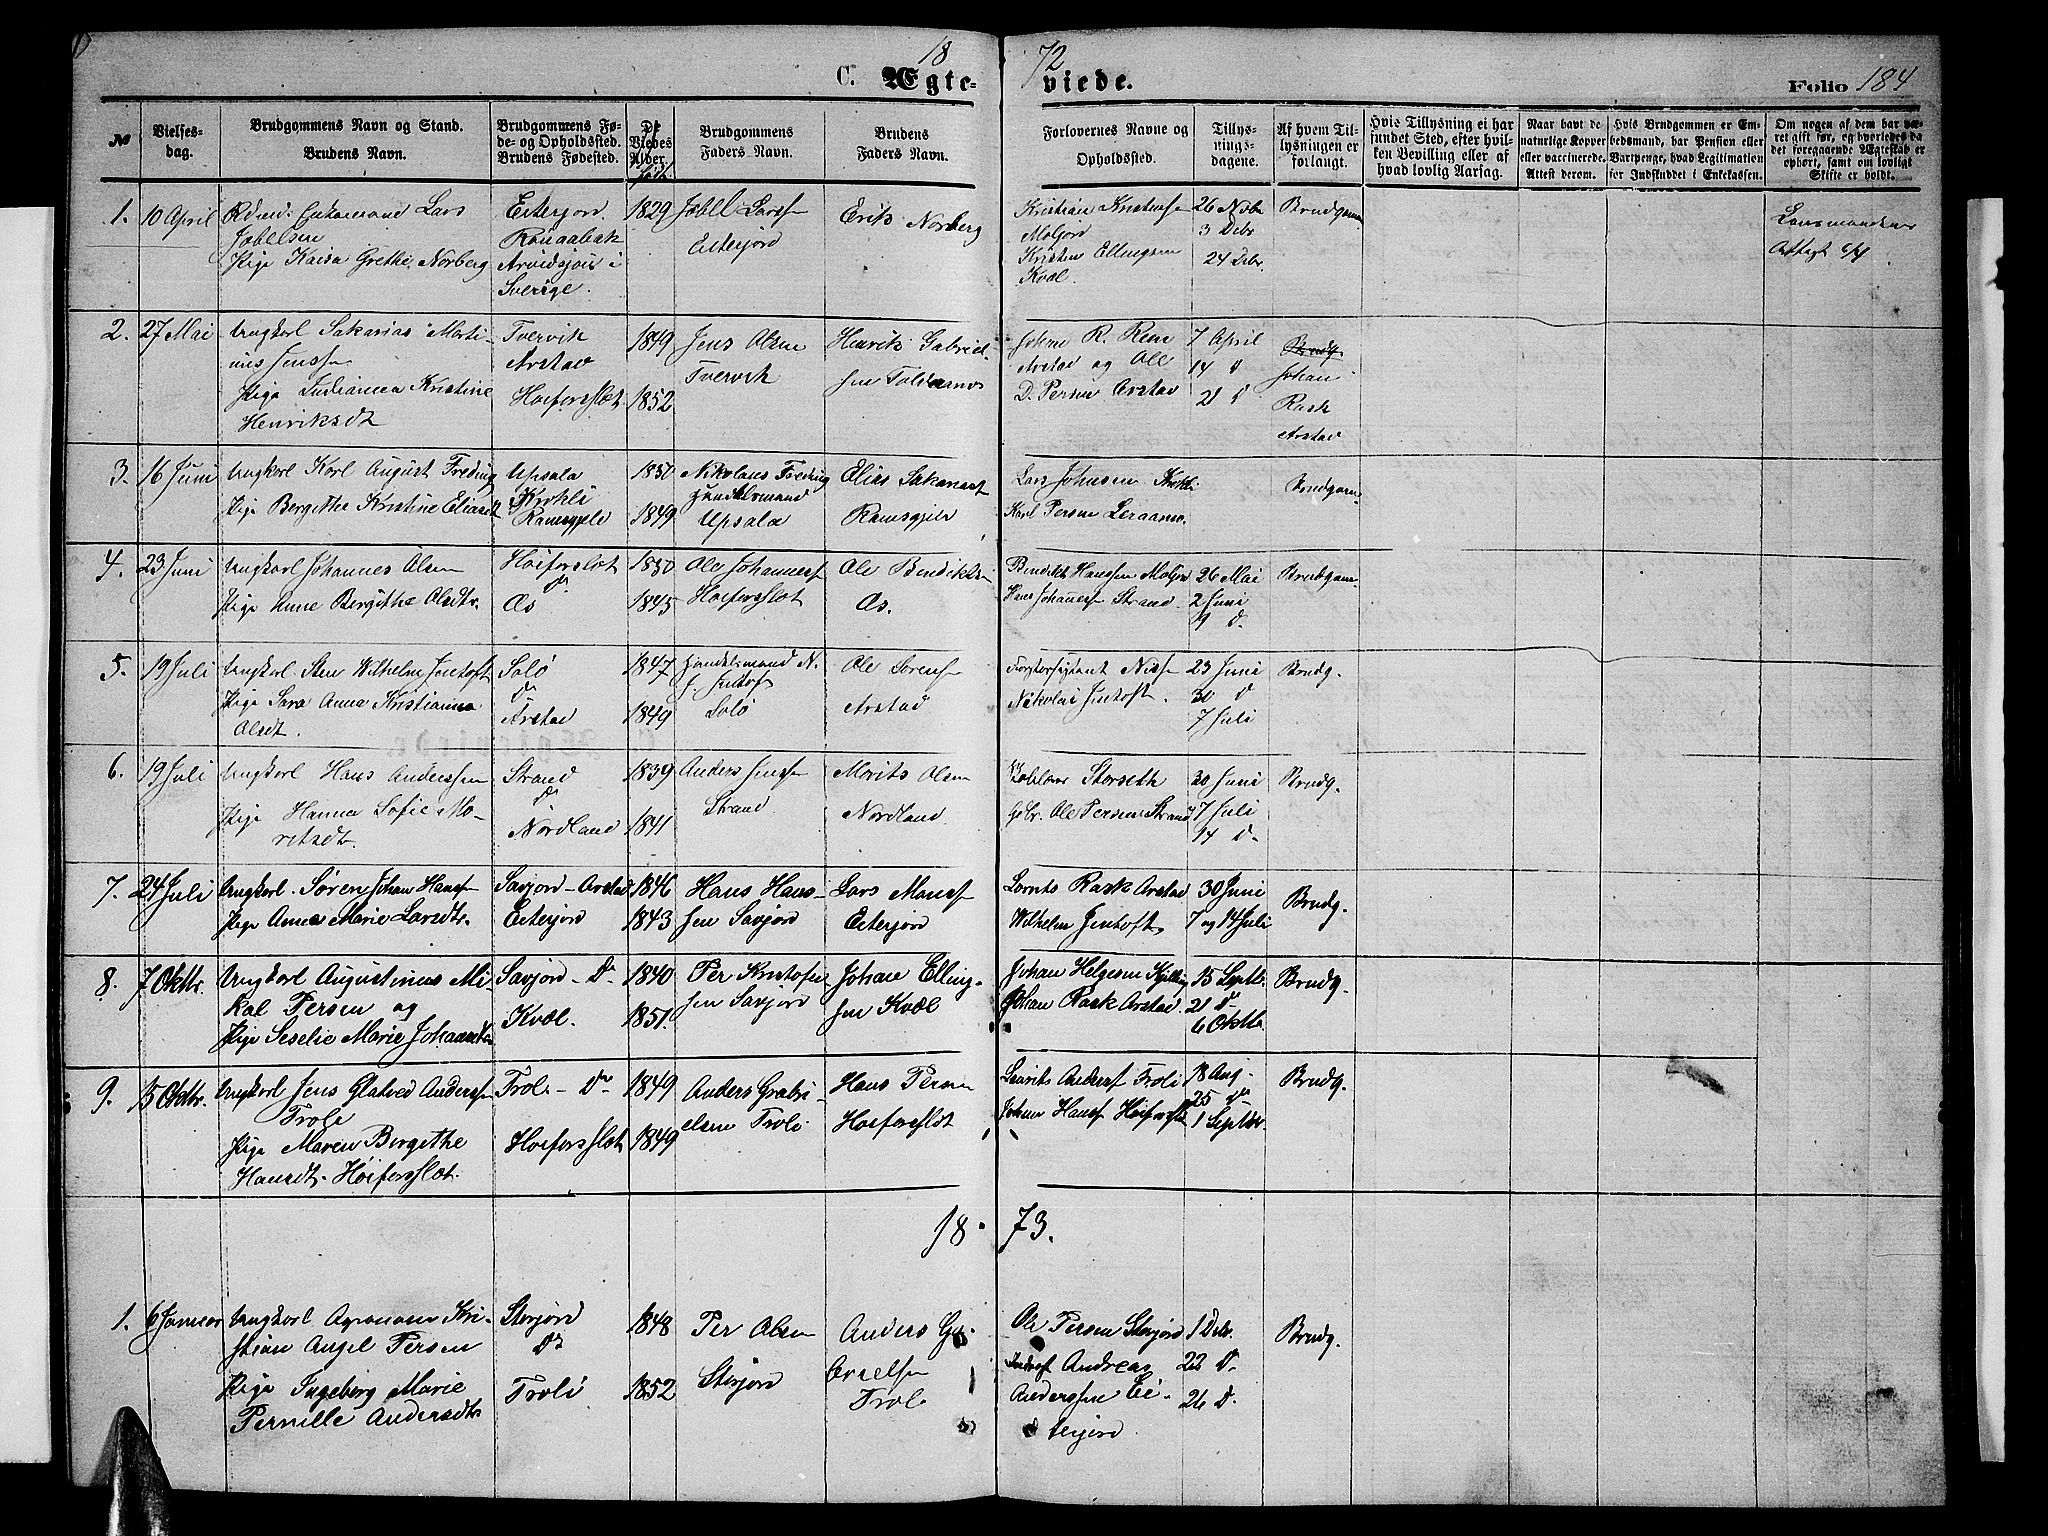 18 72
C. Ægte- viede.
Folio 184
No
Vielses-
dag.
Brudgommens Navn og Stand.
Brudens Navn.
Brudgommens Fø-
de- og Opholdssted.
Brudens Fødested.
De
Viedes
Alder.
Brudgommens
Faders Navn.
Brudens
Faders Navn.
Forlovernes Navne og
Opholdssted.
Tillys-
nings-
dagene.
Af hvem Til-
lysningen er
forlangt.
Hvis Tillysning ei har
fundet Sted, efter hvil-
ken Bevilling eller af
hvad lovlig Aarsag.
Naar havt de
naturlige Kopper
eller vaccinerede.
Attest derom.
Hvis Brudgommen er Em-
bedsmand, har Pension eller
Vartpenge, hvad Legitimation
for Indskuddet i Enkekassen.
Om nogen af dem har væ-
ret gift før, og hvorledes da
det foregaaende Ægteskab er
ophørt, samt om lovligt
Skifte er holdt.
1. 10 April
Enkemand Lars
Jobelsen
Pige Kaisa Grethe Norberg
Eiterjord
Arvidsjour i
Sverige.
1829
Jobel Larss
Eiterjord
Erik Norberg
Kristian Kristenss
Moljord
Kristen Ellingsen
Kvæl.
26 Novbr
3 Debr
24 Debr.
Brudgom
Lensmandens
Attest
2. 27 Mai
Ungkarl Sakarias Marti-
nus Jenss
Pige Julianna Kristine
Henriksdt
Tvervik
Arstad
Hoiforsslet
1849
1852
Jens Olsen
Tvervik
Henrik Gabriel-
sen Toldaanes
Johan R. Rem
Arstad og Ole
D. Persen Arstad
7 April
14 D
21 D
Brudg.
Johan
Rask
Arstad
3. 16 Juni
Ungkarl Karl August Freding
Pige Bergithe Kristine Eliasdt
Upsala
Krokli
Ramsgjeld
1850
1849
Nikolaus Freding
Handelsmand
Upsala
Elias Sakariass
Ramsgjeld
Lars Johnsen Krokli
Karl Persen Leraanes.
Brudgom
4. 23 Juni
Ungkarl Johannes Olsen
Pige Anne Bergithe Olsdtr.
Hoiforsslet
D
Os
1850
1845
Ole Johanness
Hoiforsslet
Ole Bendiks-
Os.
Bendikt Hanssen Moljord
Hans Johanness Strand.
26 Mai
2 Juni
9 D.
Brudgom
5. 19 Juli
Ungkarl Sten Wilhelm Jentoft
Pige Sara Anna Kristianna
Olsdt.
Solö
D
Arstad
1847
1849
Handelsmand N.
J. Jentoft
Solö
Ole Sorens
Arstad
Forstassistent Niss
Nikolai Jentoft.
23 Juni
30 D
7 Juli
Brudg.
6. 19 Juli
Ungkarl Hans Anderssen
Pige Hanna Sofie Mo-
ritsdt.
Strand
D
Nordland
1839
1841
Anders Jenss
Strand
Morits Olsen
Nordland
Storseth
Gbr. Ole Persen Strand
30 Juni
7 Juli
14 D.
Brudg.
7. 24 Juli
Ungkarl. Søren Johan Hanss
Pige Anna Marie Larsdtr.
Savjord - Arstad
Eiterjord
1846
1843
Hans Hans-
sen Savjord
Lars Monss
Eiterjord
Lornts Rask Arstad
Wilhelm Jentoft
30 Juni
7 og 14 Juli
Brudg.
8. 7 Oktbr.
Ungkarl Augustinus Mi-
kal Persen og
Pige Seselie Marie Johansdt
Savjord - D
Kvæl.
1840
1851.
Per Kristofer-
sen Savjord
Johan Elling-
sen Kvæl
Johan Helgesen
Johan Rask Arstad
15 Septb.
21 D
6 Oktb.
Brudg.
9. 15 Oktbr.
Ungkarl Jens Glatved Anderssen
Troli
Pige Maren Bergithe
Hansdt. Höiforsslet.
Troli - D
Hoiforsslet
1849
1849
Anders Grabri-
elsen Troli
Hans Persen
Hoiforsslet
Laurits Anderss Troli
Johan Hanss Hoiforsslet
18 Aug.
25 D
1 Septbr.
Brudg.
18 73.
1. 6 Januar
Ungkarl Agronom Kri-
stian Angel Persen
Pige Ingeborg Marie
Pernille Andersdt
Storjord
D
Troli
1848
1852
Per Olsen
Storjord
Anders Ga-
brielsen
Troli
Ole Persen Storjord
Andreas
Anderssen Ei-
terjord
1 Debr.
22 D.
26 D.
Brudg.